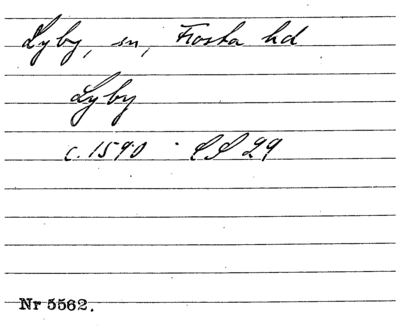 Lyby, sn, Frosta hd
Lyby
c. 1590 · CS 29
Nr 5562.